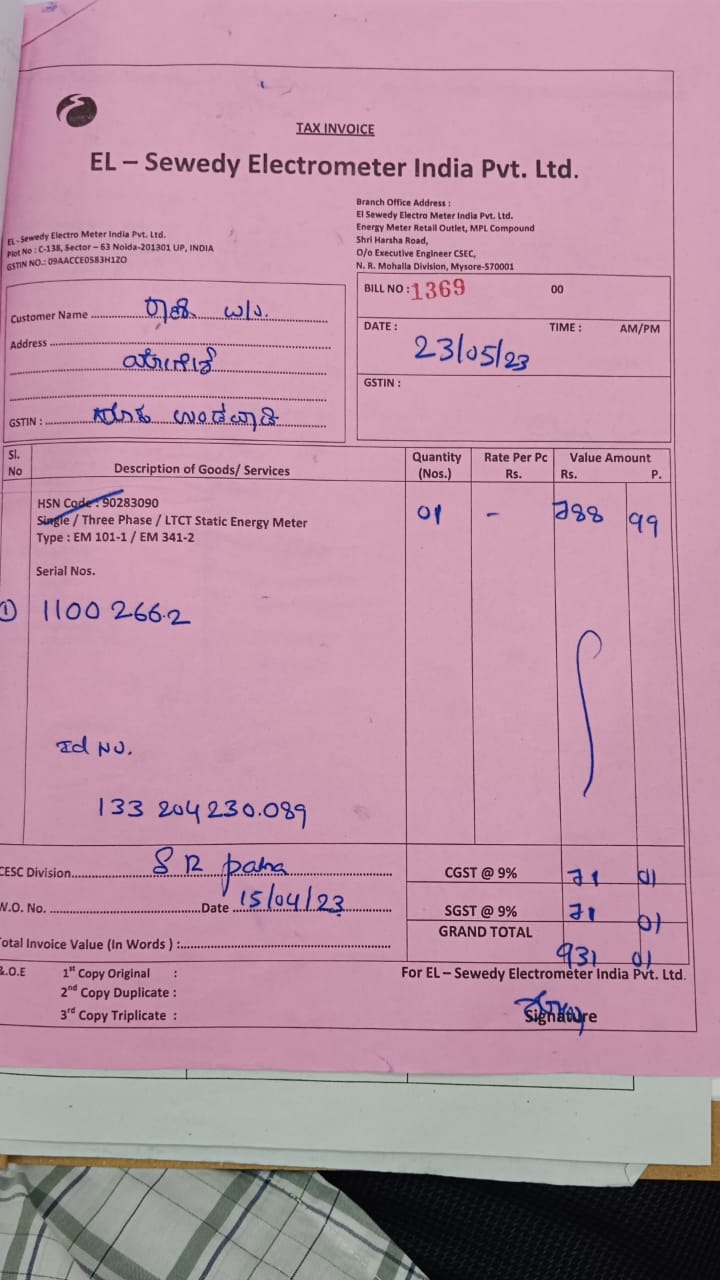 TAX INVOICE
EL – Sewedy Electrometer India Pvt. Ltd.
EL - Sewedy Electro Meter India Pvt. Ltd.
Plot No : C-138, Sector – 63 Noida-201301 UP, INDIA
GSTIN NO.: 09AACCE0583H1ZO
Branch Office Address :
El Sewedy Electro Meter India Pvt. Ltd.
Energy Meter Retail Outlet, MPL Compound
Shri Harsha Road,
O/o Executive Engineer CSEC,
N. R. Mohalla Division, Mysore-570001
Customer Name
Address
GSTIN :
BILL NO : 1369 00
DATE : 23/05/23 TIME : AM/PM
GSTIN :
Sl. No Description of Goods/ Services Quantity (Nos.) Rate Per Pc Rs. Value Amount Rs. P.
HSN Code : 90283090
Single / Three Phase / LTCT Static Energy Meter 01 - 788 99
Type : EM 101-1 / EM 341-2
Serial Nos.
① 1100 266.2
Id No.
133 204 230.089
CESC Division S R patna CGST @ 9% 71 01
W.O. No. Date 15/04/23 SGST @ 9% 71 01
Total Invoice Value (In Words ) : GRAND TOTAL 931 01
&.O.E 1st Copy Original : For EL – Sewedy Electrometer India Pvt. Ltd.
2nd Copy Duplicate :
3rd Copy Triplicate : Signature